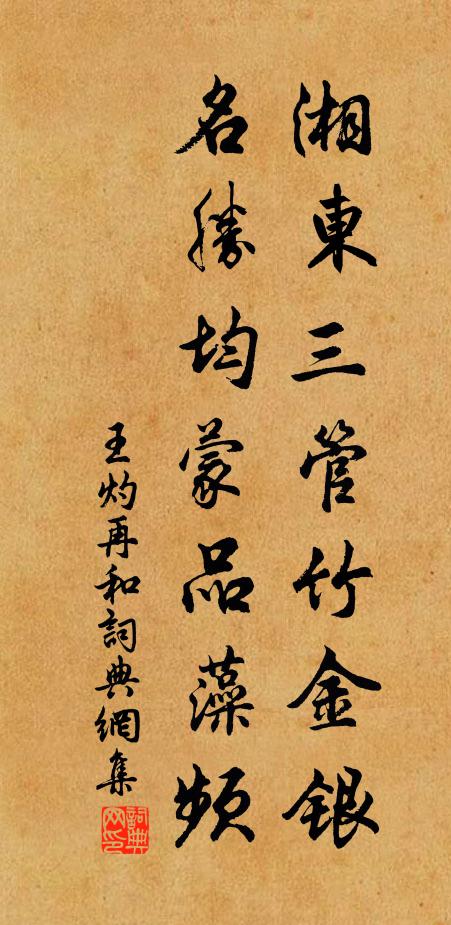 湘東三管竹金銀
名勝均蒙品藻頻
王灼再和詞典網集
詞典網印